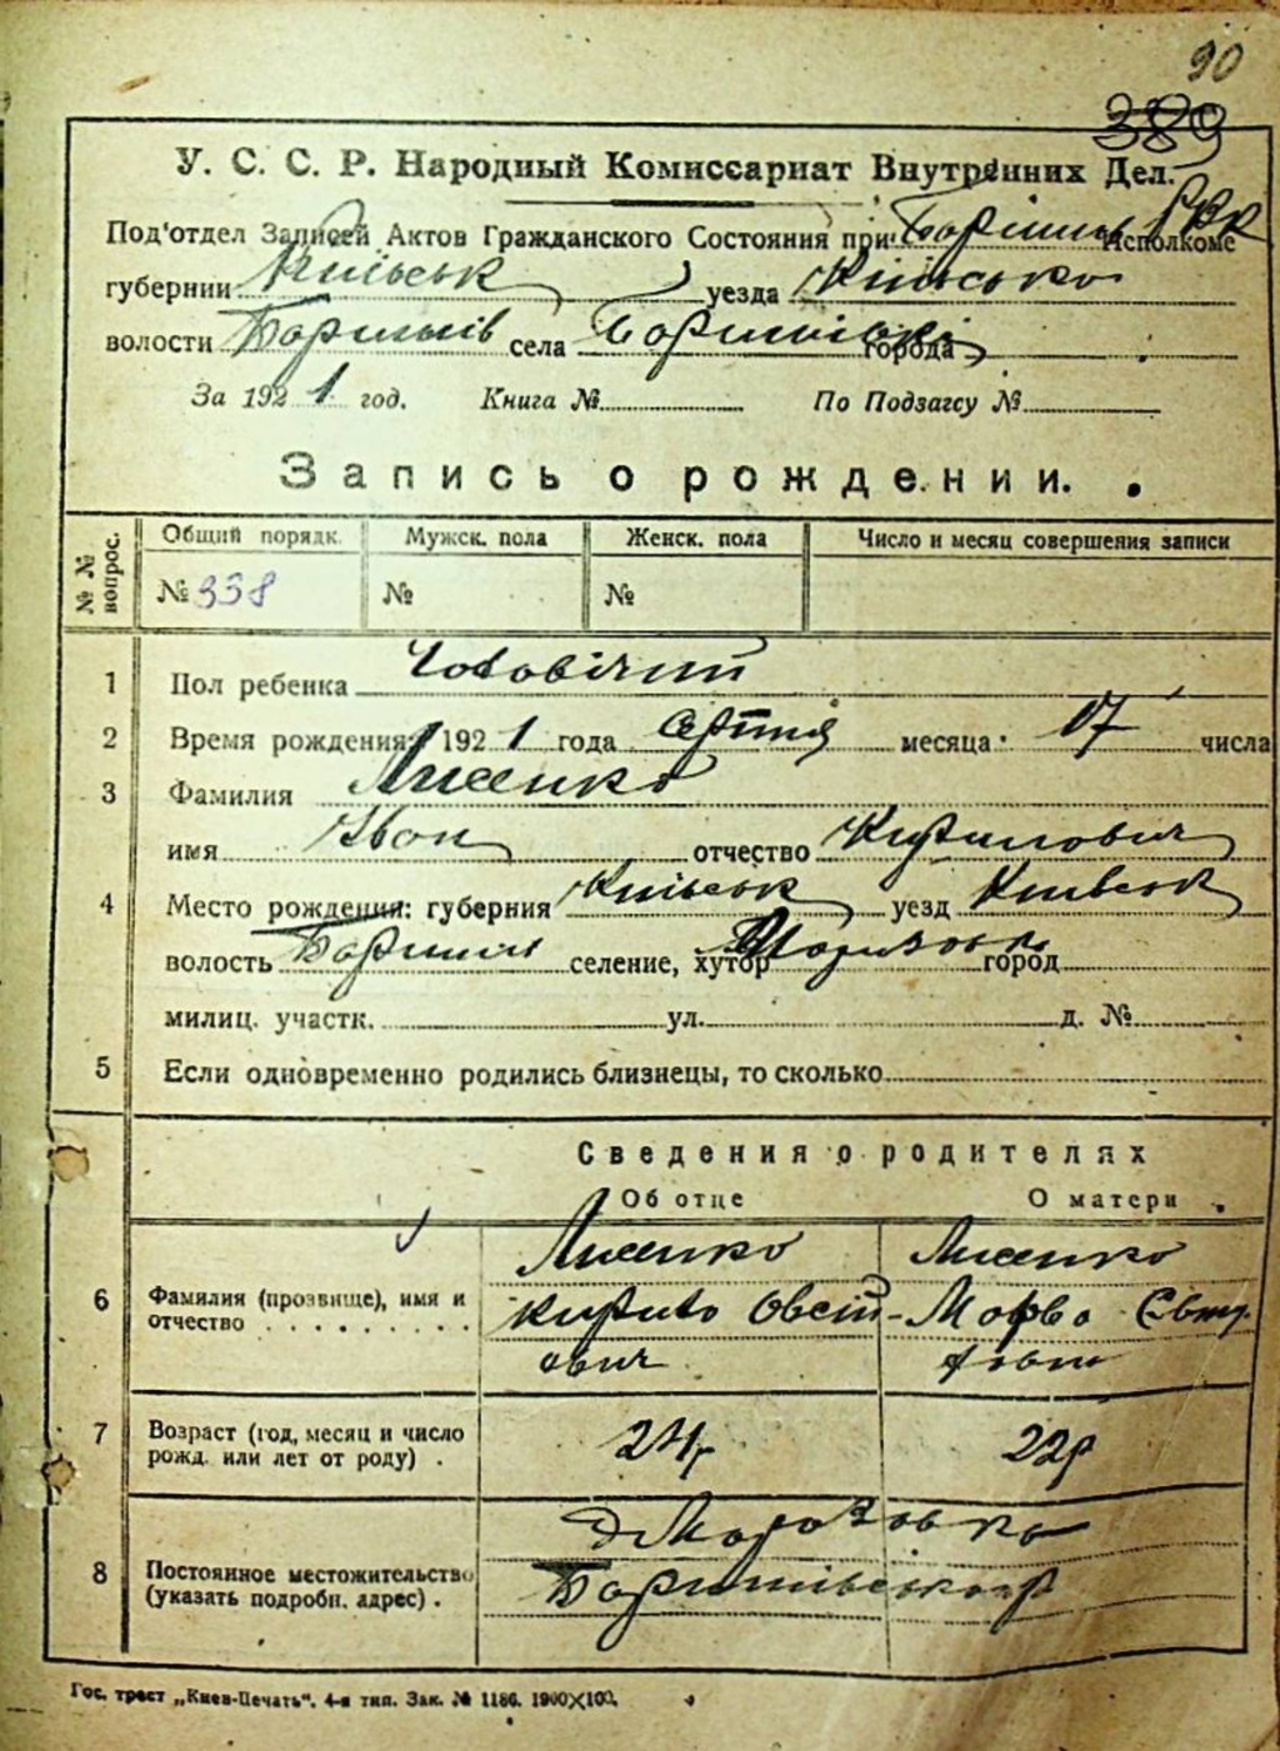 90
389
У. С. С. Р. Народный Комиссариат Внутренних Дел.
Под'отдел Записей Актов Гражданского Состояния при РВК Исполкоме
губернии Київськ уезда Київсько
волости Боришпів села города
За 1921 год. Книга № По Подзагсу №
Запись о рождении.
№№ вопрос. Общий порядк. Мужск. пола Женск. пола Число и месяц совершения записи
№ 338 № №
1 Пол ребенка Чоловічий
2 Время рождения: 1921 года серпня месяца 17 числа
3 Фамилия Лисенко
имя Іван отчество Кирилович
4 Место рождения: губерния Київськ уезд Київськ
волость Боришп селение, хутор Морозовка город
милиц. участк. ул. д. №
5 Если одновременно родились близнецы, то сколько
Сведения о родителях
Об отце О матери
Лисенко Лисенко
6 Фамилия (прозвище), имя и отчество Кирило Овсій- Марфа
ович
7 Возраст (год, месяц и число рожд. или лет от роду) 24р 22р
Морозовка
8 Постоянное местожительство (указать подробн. адрес)
Гос. трест „Киев-Печать“. 4-я тип. Зак. № 1186. 1900×100.